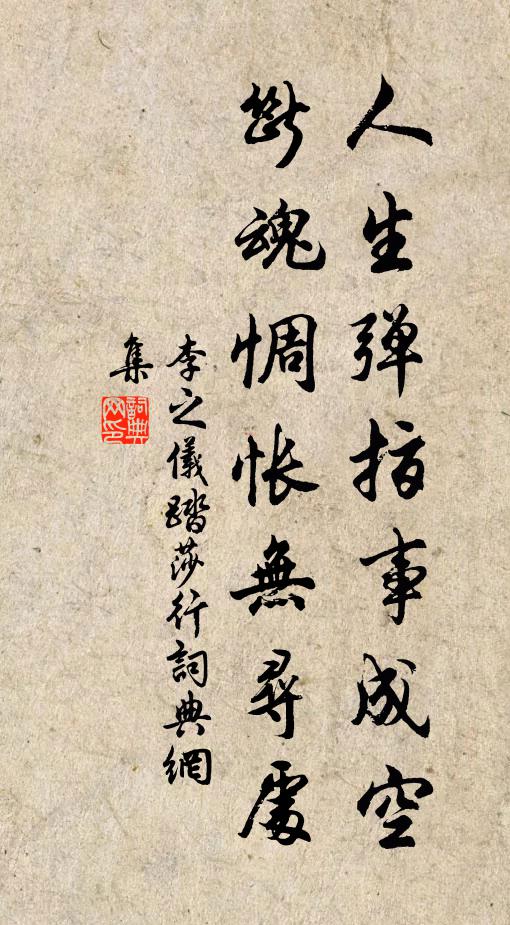 人生弹指事成空
断魂惆怅無尋處
李之儀踏莎行詞典網
集
詞典网印